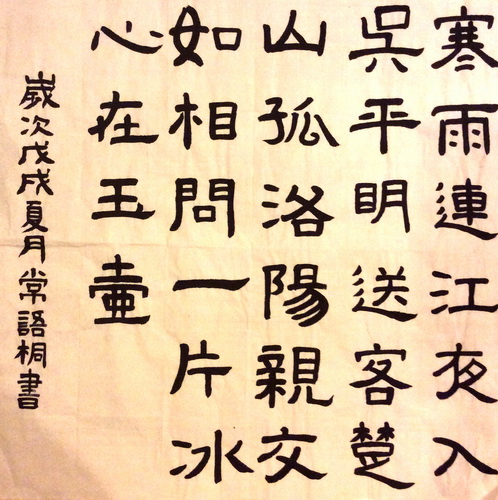 寒雨連江夜入
吳平明送客楚
山孤洛陽親友
如相問一片冰
心在玉壺
歲次戊戌夏月常語桐書